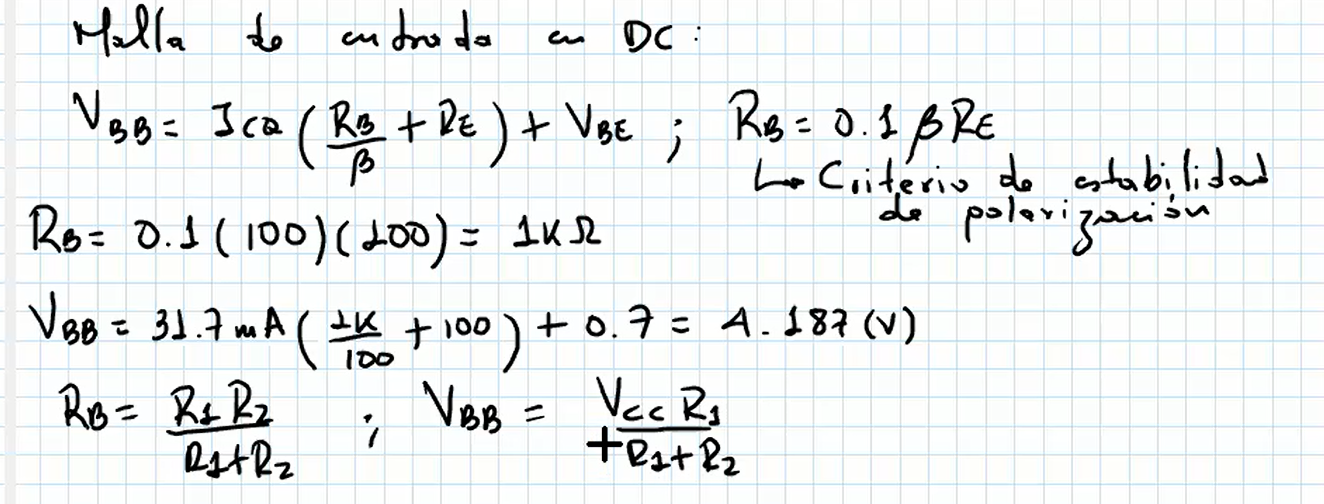 Malla de entrada en DC:
V_BB = I_CQ (R_B/β + R_E) + V_BE ; R_B = 0.1 β R_E
↳ Criterio de estabilidad
de polarización
R_B = 0.1 (100)(100) = 1K Ω
V_BB = 31.7 mA (1K/100 + 100) + 0.7 = 4.187 (V)
R_B = R1 R2/(R1+R2) ; V_BB = V_CC R1/(R1+R2)